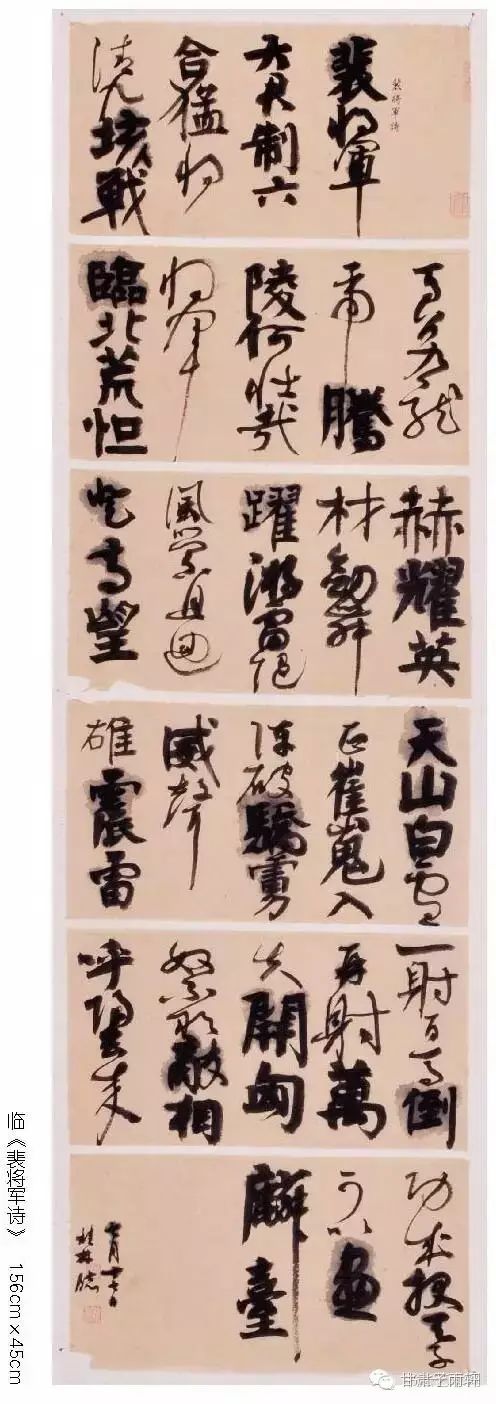 裴將軍詩
裴将軍
天君制六
合猛将
清九垓戰
馬若龍
虎騰
陵何壮哉
将軍
臨北荒怛
赫耀英
材劍舞
躍游電随
風縈且迴
登高望
天山白雲
正崔嵬入
陣破驕虜
威聲
雄震雷
一射百馬倒
再射萬
夫開匈
奴不敢敵相
呼歸去来
功成报天子
可以畫
麟臺
临《裴将军诗》 156cm×45cm
甘肃子雨翔